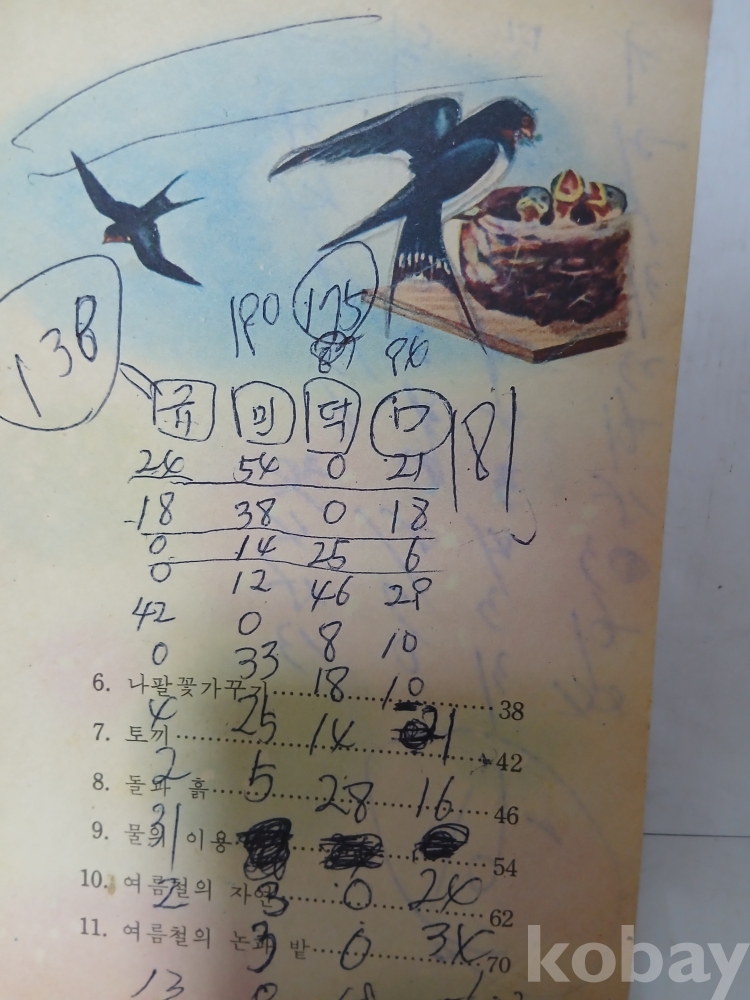 138
180 175
규 미 덕 ㅁ 181
24 54 0 21
18 38 0 18
0 14 25 6
0 12 46 29
42 0 8 10
0 33 18 10
6. 나팔꽃가꾸기 38
4 25 14 21
7. 토끼 42
2 5 28 16
8. 돌과 흙 46
31
9. 물의 이용 54
2 3 0 24
10. 여름철의 자연 62
3 0 34
11. 여름철의 논과 밭 70
13
kobay